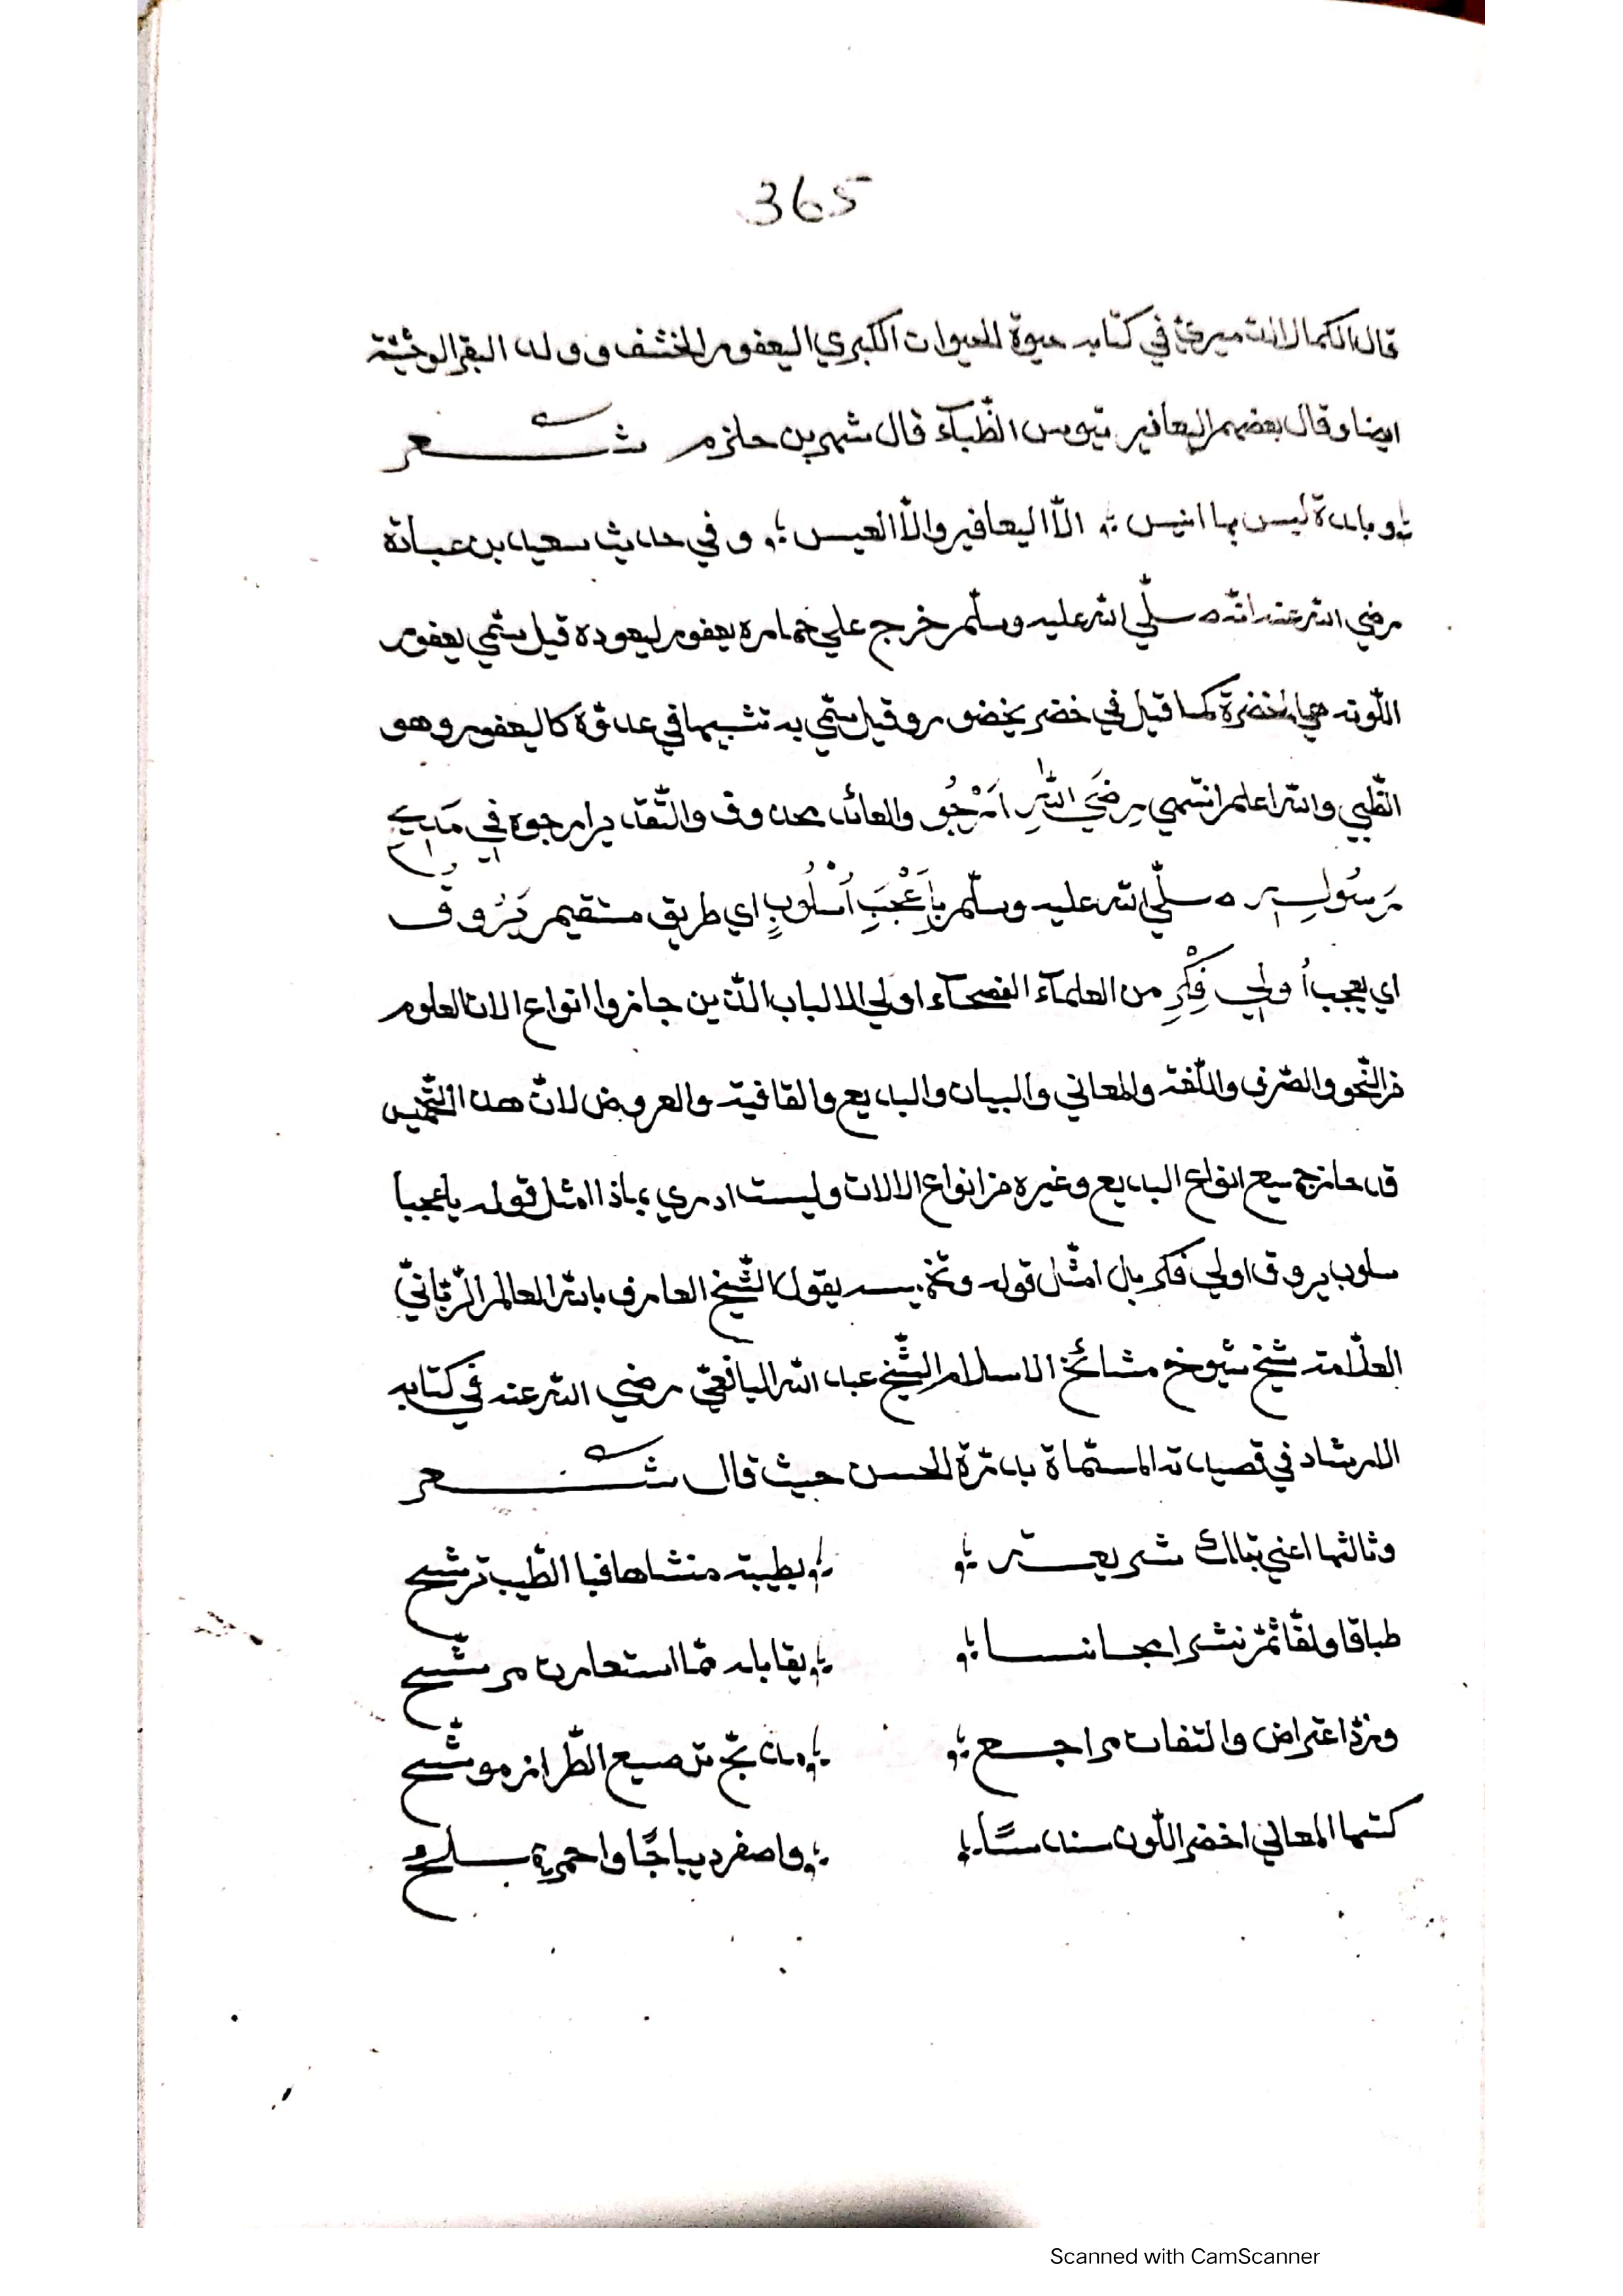 365
قال الكمال الدميري في كتابه حيوة الحيوان الكبري اليعفور الخشف وولد البقر الوحشية
ايضا وقال بعضهم اليعافير تيوس الظّبآء قال شهر بن حازم شعر
وبلدة ليس بها انيس الّا اليعافير والّا العيس وفي حديث سعيد بن عبادة
رضي الله عنه انّه صلّي الله عليه وسلّم خرج علي حماره يعفور ليعوده قيل سمّي يعفور
اللّونه هي الخضرة كما قيل في خضر يخضور وقيل سمّي به تشبيها في عدوّة كاليعفور وهو
الظّبي والله اعلم انتهي رِضَيَ اللّٰهِ اَرْجُو والعائد محذوف والتّقدير ارجوه في مَدِيحِي
رَسُولِهِ صلّي الله عليه وسلّم بِاَعْجَبَ اُسْلُوبٍ اي طريق مستقيم يَرُوقُ
اي يعجب اُولِي فِكْرِ من العلمآء الفصحآء اولي الالباب الّذين حازوا انواع الات العلوم
من النّحو والصّرف واللّغة والمعاني والبيان والبديع والقافية والعروض لانّ هذا التّخميس
قد حاز جميع انواع البديع وغيره من انواع الالات وليست ادري بماذا امثل قوله باعجبا
سلوب يروق اولي فكر بل امثّل قوله وتخميسه يقول الشّيخ العارف بالله العالم الرّبّانيّ
العلّامة شيخ شيوخ مشائخ الاسلام الشّيخ عبد الله اليافعيّ رضي الله عنه في كتابه
الارشاد في قصيدته المسمّاة بدرّة الحسن حيث قال شعر
وثالثها اعني بتلك شريعة بطيبة منشاها فيا الطّيب ترشح
طباقا ولفّا ثمّ نشرا مجانسا يقابله ممّا استعارت مرشّح
وردّ اعتراض والتفات مراجع ترصيع الطّراز موشّح
كستها المعالي اخضر اللّون سندسًا واصفر ديباجًا واحمر
Scanned with CamScanner